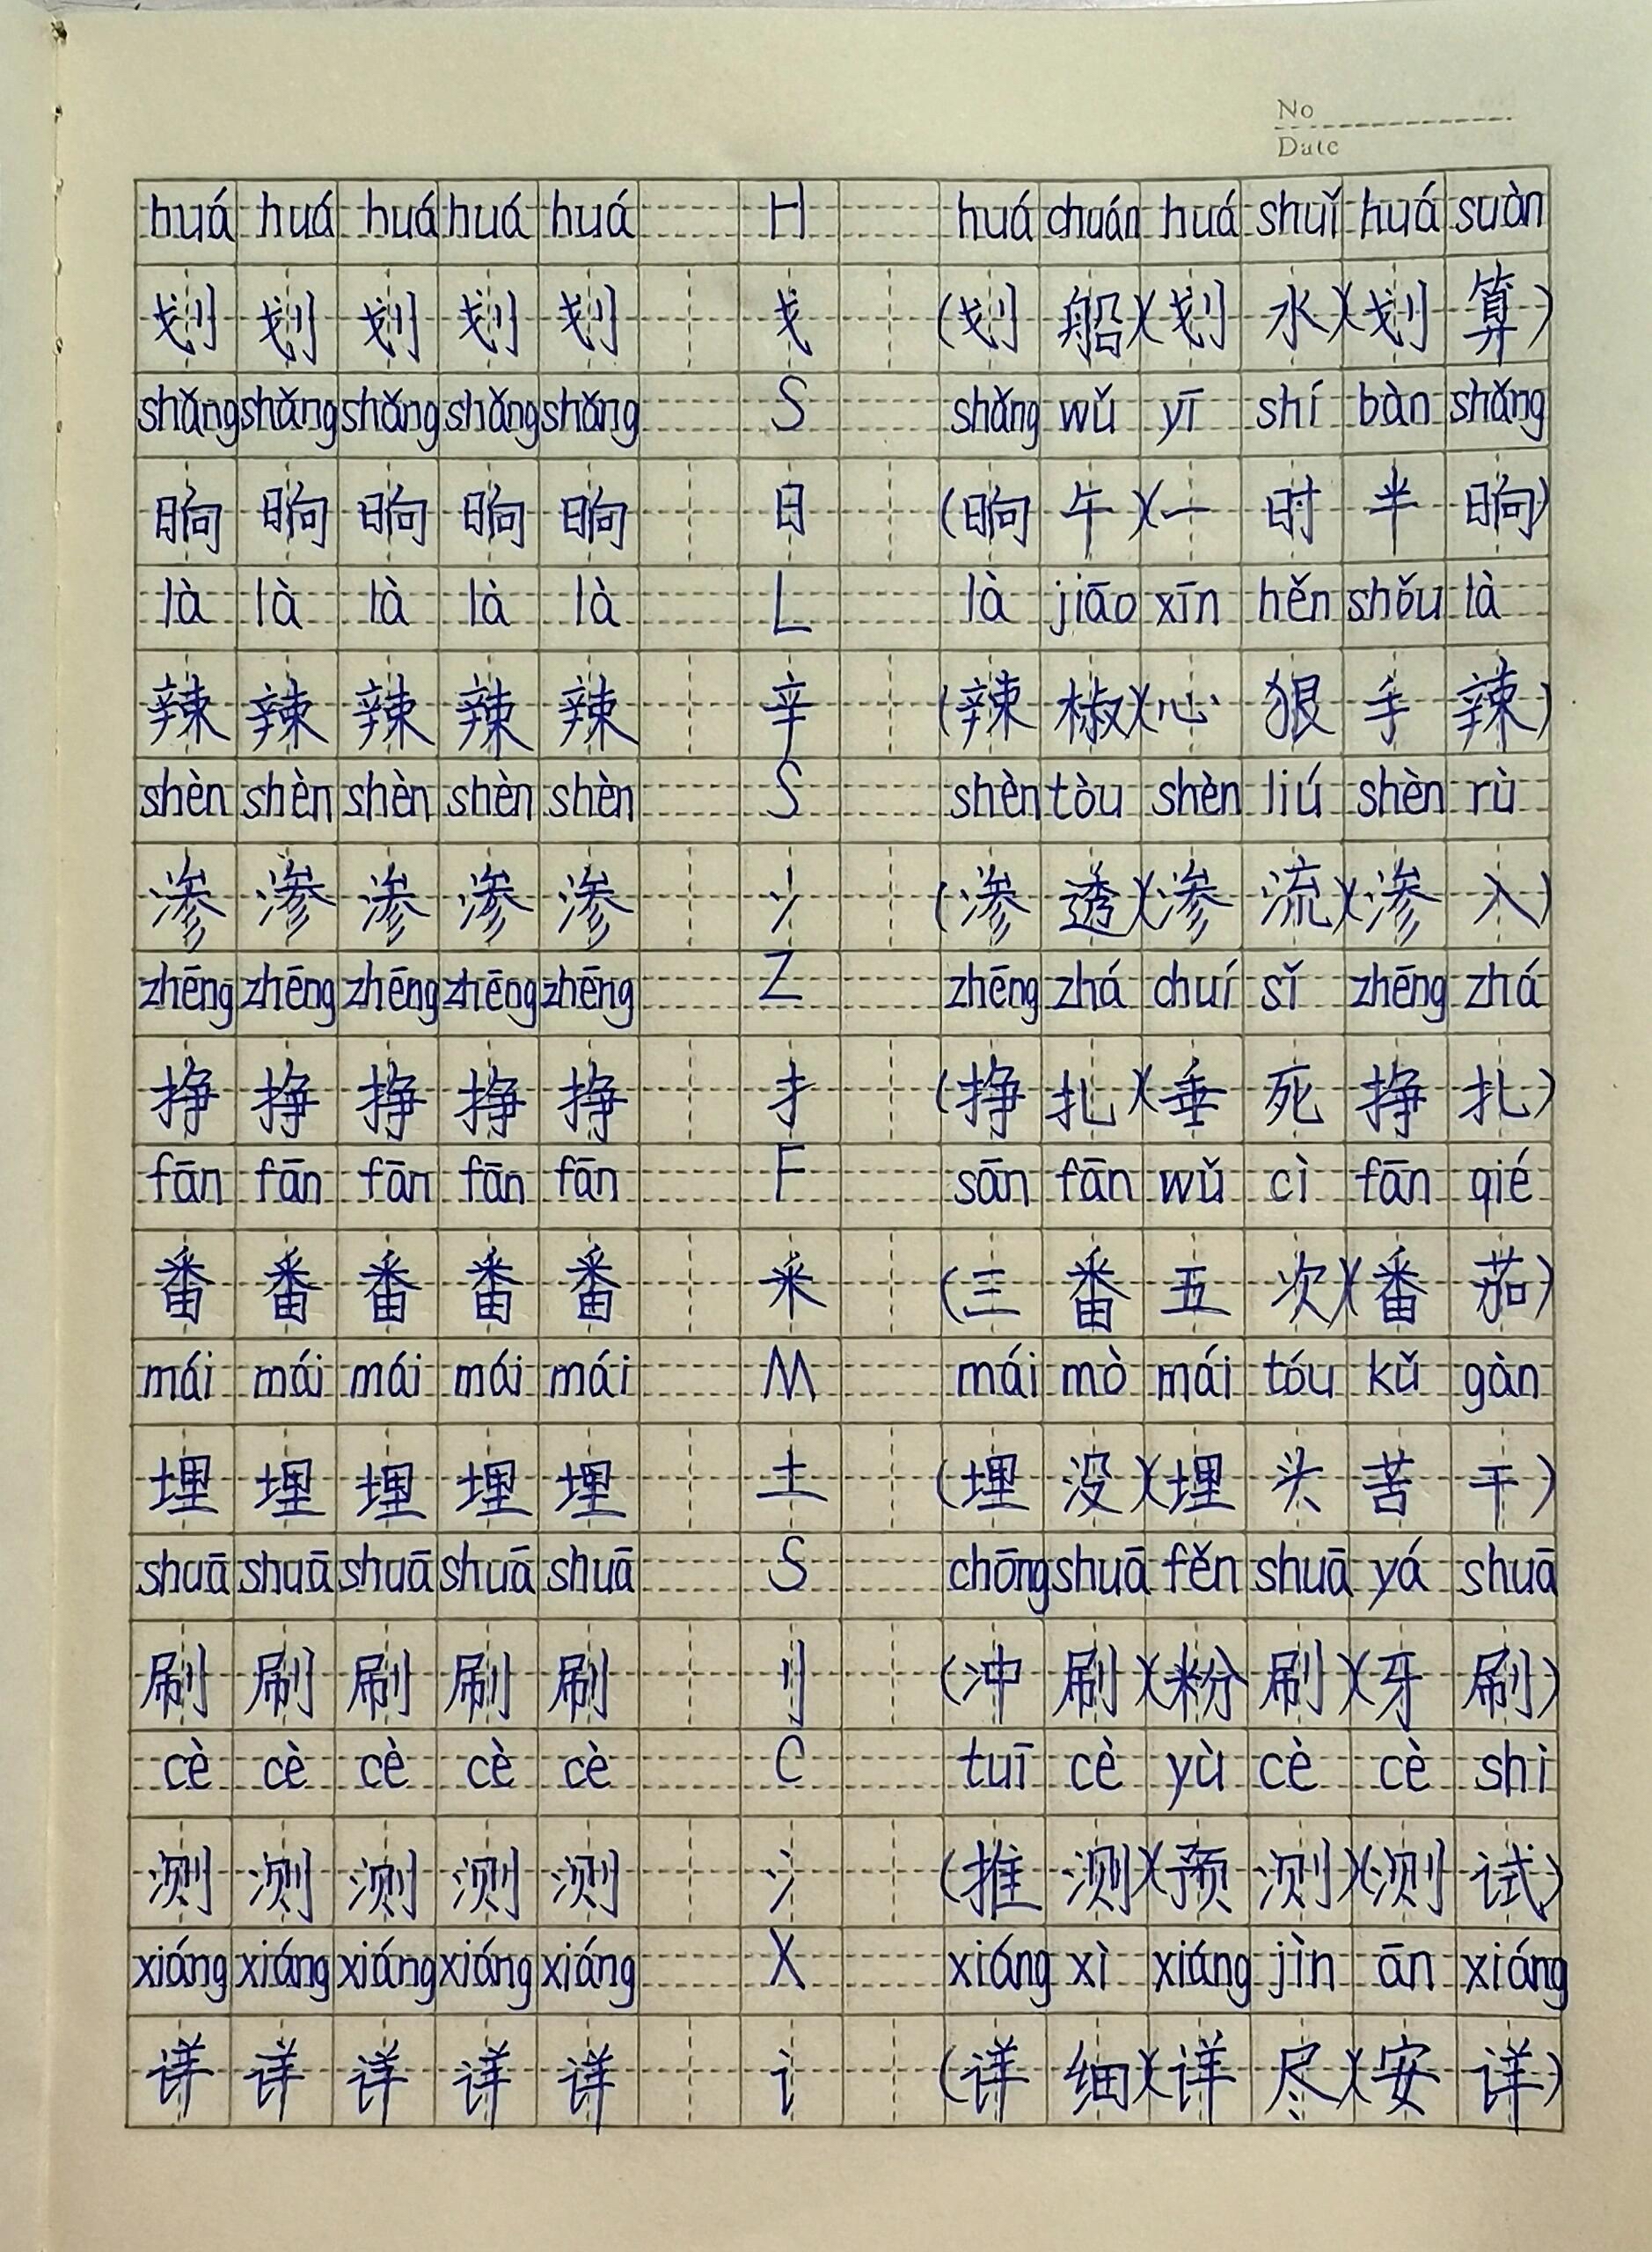 No
Date
huá huá huá huá huá H huá chuán huá shuǐ huá suàn
划 划 划 划 划 戈 (划 船)(划 水)(划 算)
shǎng shǎng shǎng shǎng shǎng S shǎng wǔ yī shí bàn shǎng
晌 晌 晌 晌 晌 日 (晌 午)(一 时 半 晌)
là là là là là L là jiāo xīn hěn shǒu là
辣 辣 辣 辣 辣 辛 (辣 椒)(心 狠 手 辣)
shèn shèn shèn shèn shèn S shèn tòu shèn liú shèn rù
渗 渗 渗 渗 渗 氵 (渗 透)(渗 流)(渗 入)
zhēng zhēng zhēng zhēng zhēng Z zhēng zhá chuí sǐ zhēng zhá
挣 挣 挣 挣 挣 扌 (挣 扎)(垂 死 挣 扎)
fān fān fān fān fān F sān fān wǔ cì fān qié
番 番 番 番 番 釆 (三 番 五 次)(番 茄)
mái mái mái mái mái M mái mò mái tóu kǔ gàn
埋 埋 埋 埋 埋 土 (埋 没)(埋 头 苦 干)
shuā shuā shuā shuā shuā S chōng shuā fěn shuā yá shuā
刷 刷 刷 刷 刷 刂 (冲 刷)(粉 刷)(牙 刷)
cè cè cè cè cè C tuī cè yù cè cè shì
测 测 测 测 测 氵 (推 测)(预 测)(测 试)
xiáng xiáng xiáng xiáng xiáng X xiáng xì xiáng jìn ān xiáng
详 详 详 详 详 讠 (详 细)(详 尽)(安 详)